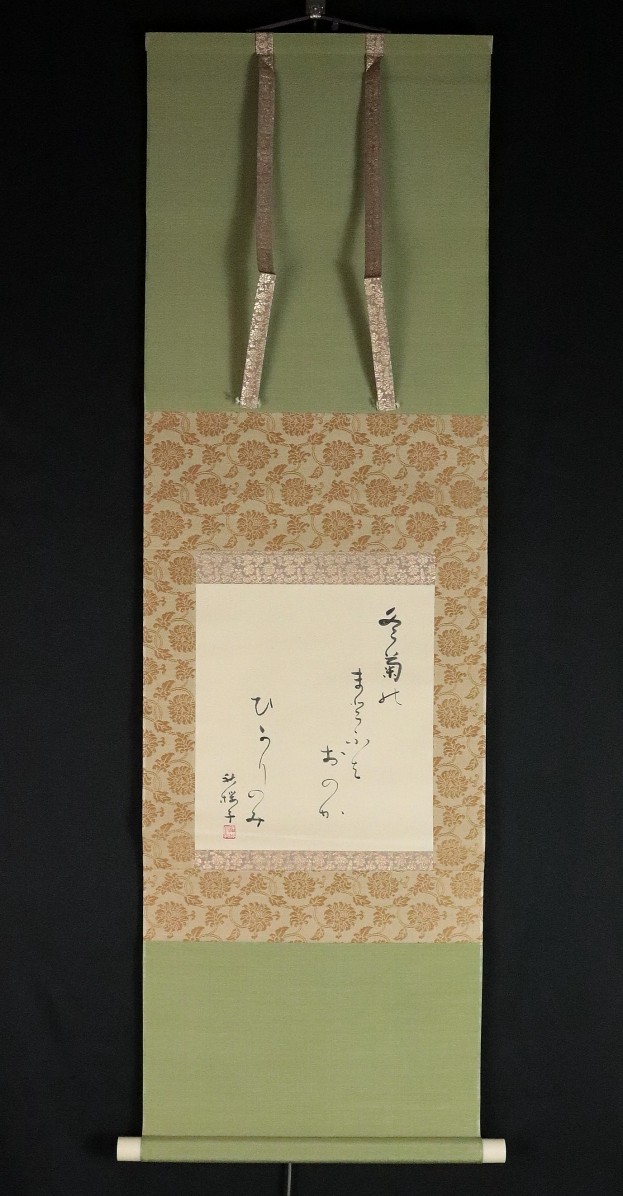 冬菊の
まとふは
おのが
ひかりのみ
秋櫻子